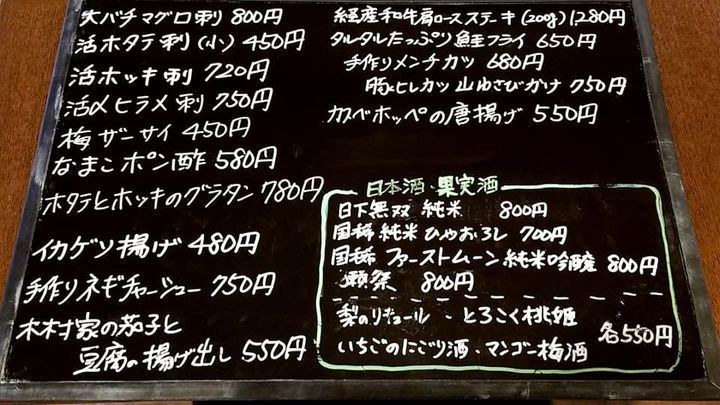 大バチマグロ刺 800円
活ホタテ刺(小) 450円
活ホッキ刺 720円
活〆ヒラメ刺 750円
梅ザーサイ 450円
なまこポン酢 580円
ホタテとホッキのグラタン 780円
イカゲソ揚げ 480円
手作りネギチャーシュー 750円
木村家の茄子と
豆腐の揚げ出し 550円
経産和牛肩ロースステーキ(200g) 1280円
タルタルたっぷり鮭フライ 650円
手作りメンチカツ 680円
豚ヒレカツ 山わさびがけ 750円
カスベホッペの唐揚げ 550円
日本酒・果実酒
日下無双 純米 800円
国稀 純米 ひやおろし 700円
国稀 ファーストムーン 純米吟醸 800円
獺祭 800円
梨のリキュール・とろこく桃姫
いちごのにごり酒・マンゴー梅酒
各550円